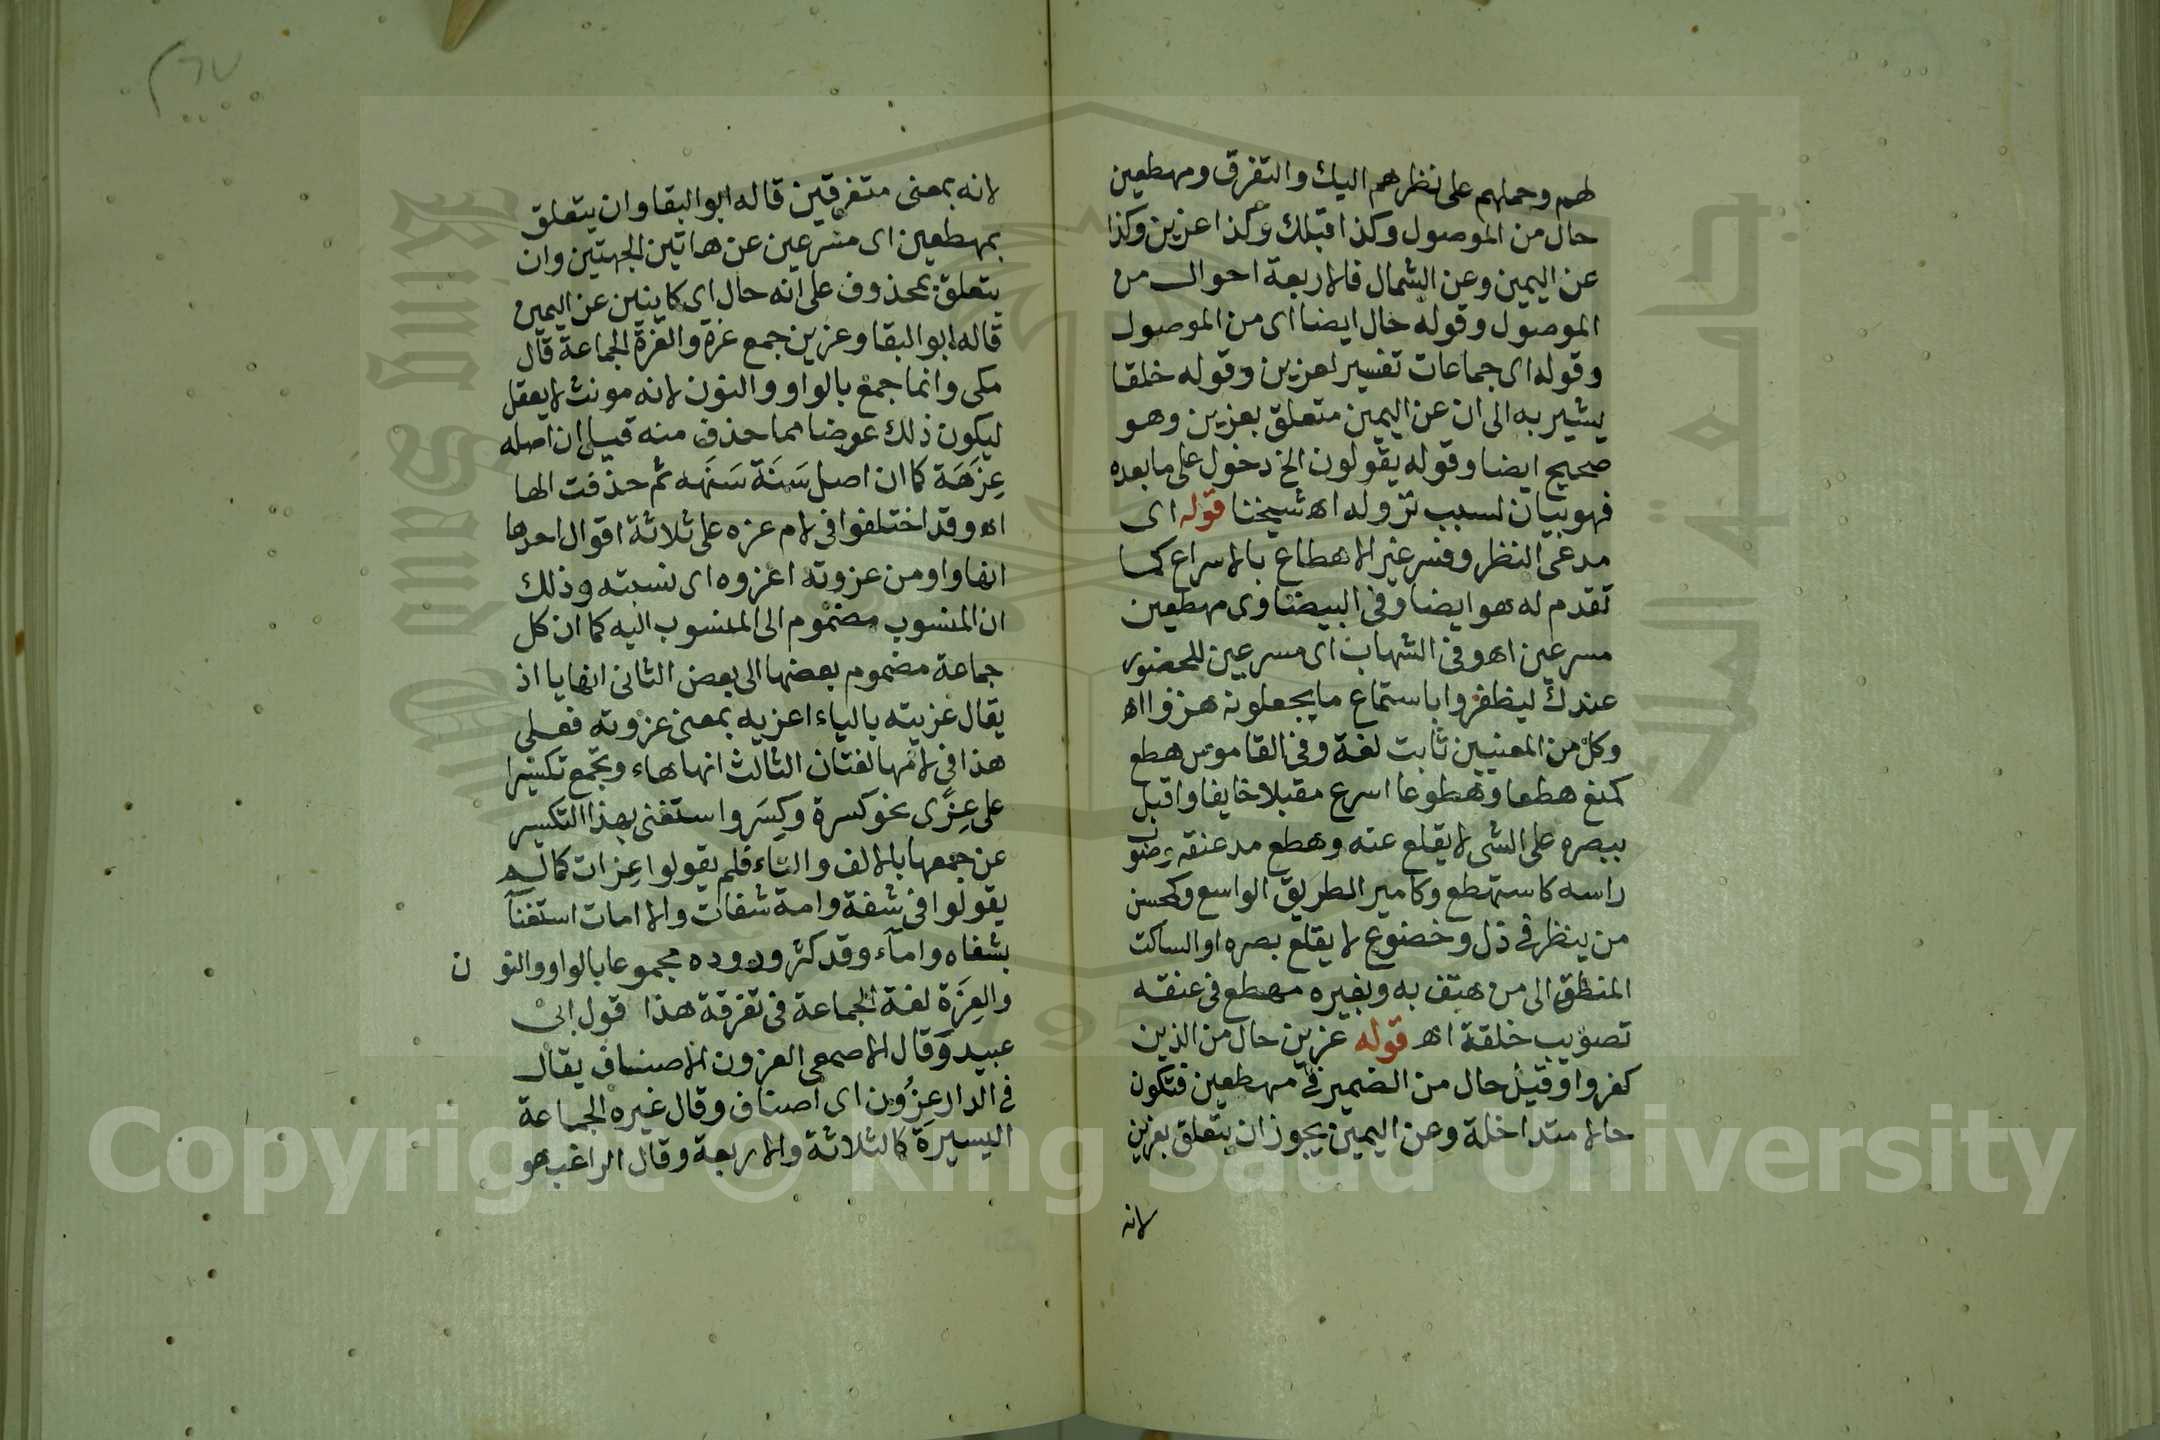 لهم وحملهم على نظرهم اليك والتفرق ومهطعين
حال من الموصول وكذا قبلك وكذا عزين وكذا
عن اليمين وعن الشمال فالاربعة احوال من
الموصول وقوله حال ايضا اى من الموصول
وقوله اى جماعات تفسير لعزين وقوله خلقا
يشير به الى ان عن اليمين متعلق بعزين وهو
صحيح ايضا وقوله يقولون الخ دخول على ما بعده
فهو بيان لسبب نزوله اه شيخنا قوله اى
مدعى النظر وفسر غير الاهطاع بالاسراع كما
تقدم له هو ايضا وفى البيضاوى مهطعين
مسرعين اه وفى الشهاب اى مسرعين للحضور
عندك ليظفروا باستماع ما يجعلونه هزوا اه
وكل من المعنيين ثابت لغة وفى القاموس هطع
كمنع هطعا وهطوعا اسرع مقبلا خايفا واقبل
ببصره على الشى لا يقلع عنه وهطع مد عنقه وصوب
راسه كاستهطع وكامير الطريق الواسع وكمحسن
من ينظر فى ذل وخضوع لا يقلع بصره او الساكت
المنطلق الى من هتف به وبعيره مهطع فى عنقه
تصويب خلقة اه قوله عزين حال من الذين
كفروا وقيل حال من الضمير فى مهطعين فتكون
حالا متداخلة وعن اليمين يجوز ان يتعلق بعزين
لانه
لانه بمعنى متفرقين قاله ابو البقا وان يتعلق
بمهطعين اى مسرعين عن هاتين الجهتين وان
يتعلق بمحذوف على انه حال اى كاينين عن اليمين
قاله ابو البقا وعزين جمع عزة والعزة الجماعة قال
مكى وانما جمع بالواو والنون لانه مونث لا يعقل
ليكون ذلك عوضا مما حذف منه قيل ان اصله
عِزَهَة كما ان اصل سَنَة سَنَهَه ثم حذفت الها
اه وقد اختلفوا فى لام عزه على ثلاثة اقوال احدها
انها واو من عزوته اعزوه اى نسبته وذلك
ان المنسوب مضموم الى المنسوب اليه كما ان كل
جماعة مضموم بعضها الى بعض الثانى انها يا اذ
يقال عزيته بالياء اعزيه بمعنى عزوته فعلى
هذا فى لامها لغتان الثالث انها هاء وتجمع تكسيرا
على عِزًى نحو كسرة وكِسَر واستغنى بهذا التكسير
عن جمعها بالالف والتاء فلم يقولوا عِزات كما لم
يقولوا فى شفة وامة شفات ولا امات استغناَ
بشفاه واماَء وقد كثر وروده مجموعا بالواو والنون
والعِزَة لغة الجماعة فى تفرقة هذا قول ابى
عبيد وقال الاصمعى العزون الاصناف يقال
فى الدار عِزُون اى اصناف وقال غيره الجماعة
اليسيرة كالثلاثة والاربعة وقال الراغب هو
Copyright © King Saud University